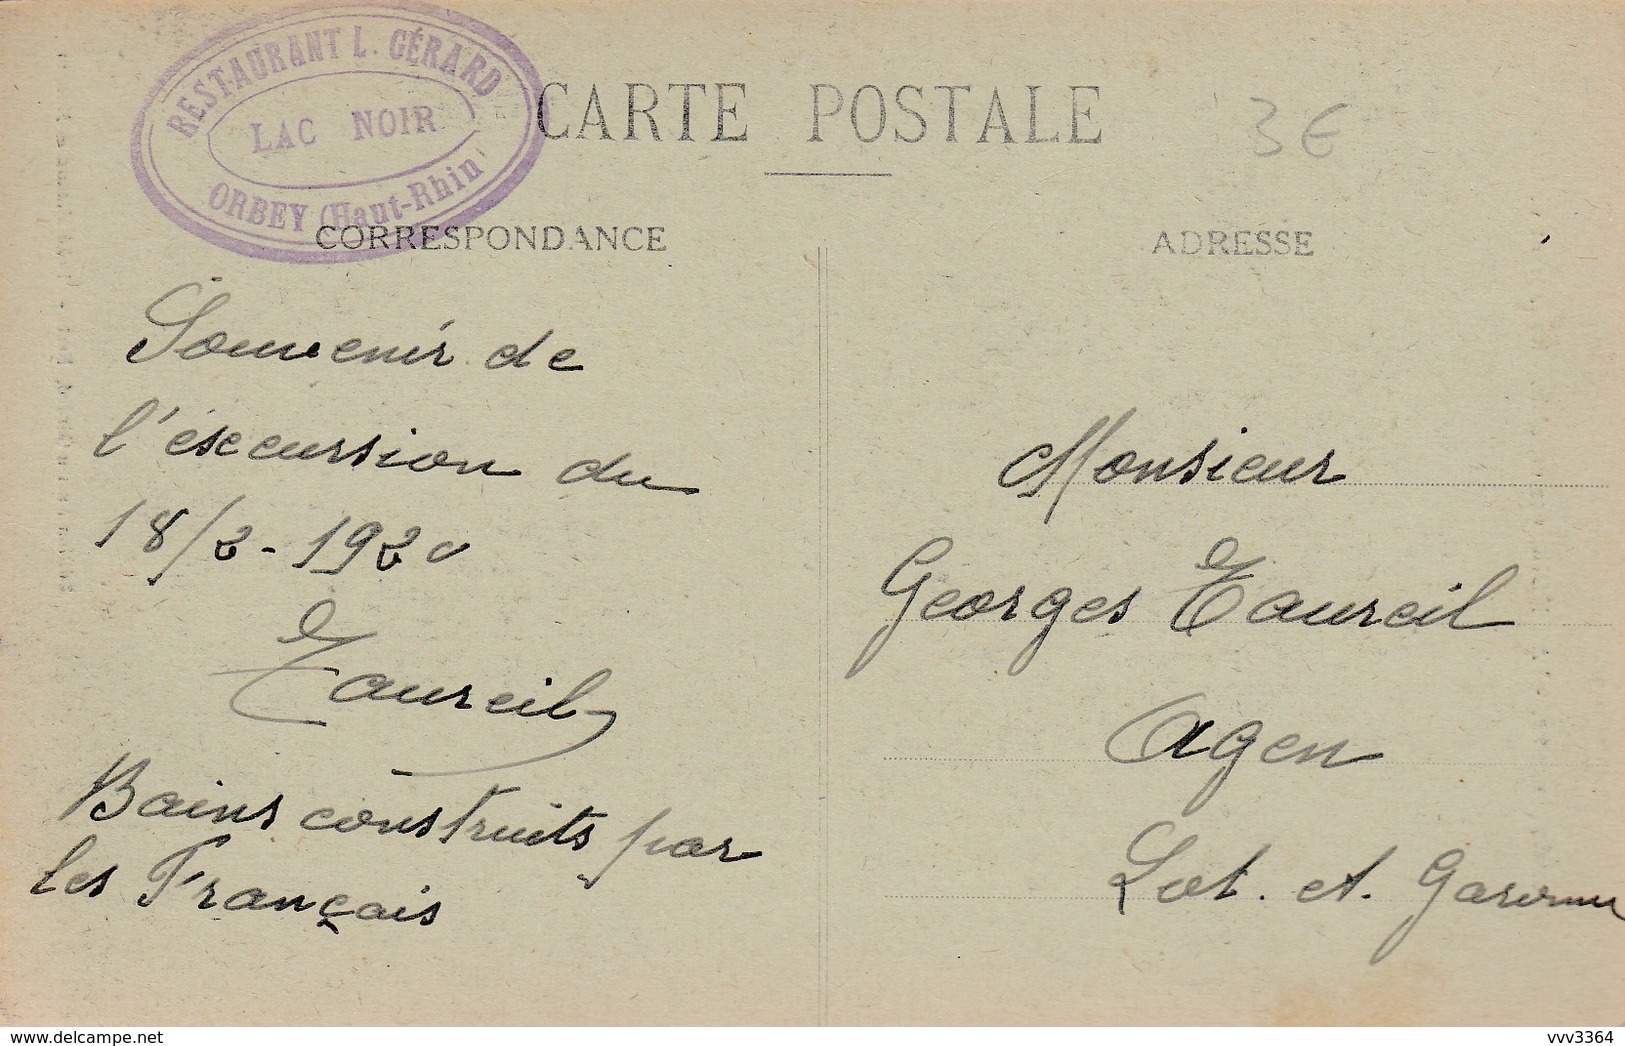 RESTAURANT L. GÉRARD
LAC NOIR
ORBEY (Haut-Rhin
CARTE POSTALE
3€
CORRESPONDANCE
ADRESSE
Souvenir de
l'éxcursion du
18/2-1920
Taureil
Bains construits par
les Français
Monsieur
Georges Taureil
Agen
Lot. et. Garonne
www.delcampe.net
vvv3364